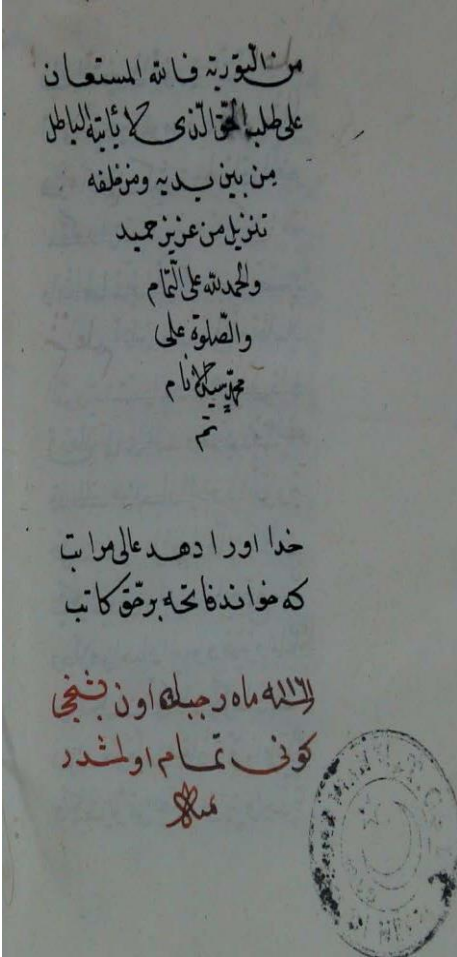 من التورية فالله المستعان
على طلب الحق الذى لا يأتيه الباطل
من بين يديه ومن خلفه
تنزيل من عزيز حميد
والحمد لله على التمام
والصلوة على
محمد سيد الانام
تم
خدا اورا دهد عالى مراتب
كه خواند فاتحه بر حق كاتب
ماه رجبك اون بشنجى
كونى تمام اولمشدر